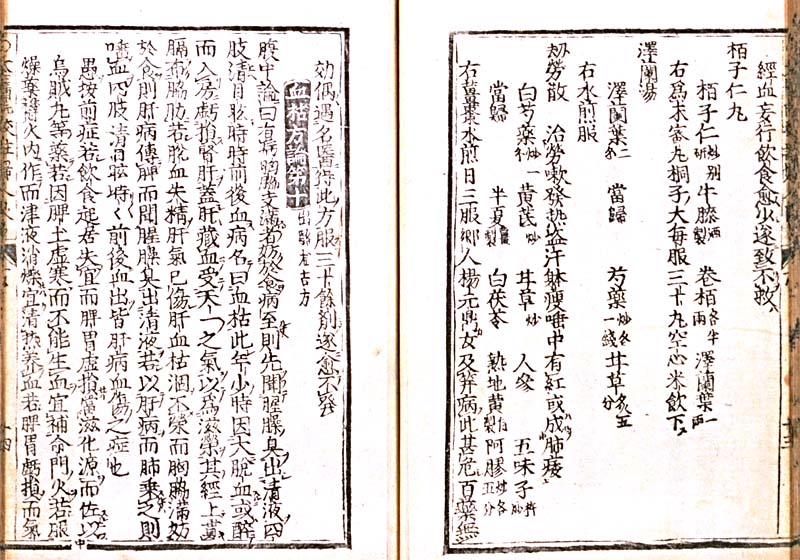 經血妄行飲食愈少遂致不救
栢子仁丸
栢子仁炒研別 牛膝酒製 卷栢各半兩 澤蘭葉二兩
右爲末蜜丸桐子大每服三十丸空心米飲下
澤蘭湯
澤蘭葉三 當歸 芍藥炒各一錢 甘草炙五分
右水煎服
刼勞散 治勞嗽發熱盜汗體瘦唾中有紅或成肺痿
白芍藥炒 黃芪炒 甘草炒 人參 五味子杵炒
當歸 半夏製 白茯苓 熟地黃製 阿膠炒各五分
右薑棗水煎日三服鄉人楊元鼎女及笄病此甚危百藥無
効偶遇名醫得此方服三十餘劑遂愈不發
血枯方論第十 出駱龍吉方
腹中論曰有病胸脇支滿者妨於食病至則先聞腥臊臭出清液四
肢清目眩時時前後血病名曰血枯此年少時因大脫血或醉
而入房虧損腎肝蓋肝藏血受天一之氣以爲滋榮其經上貫
膈布脇肋若脫血失精肝氣已傷肝血枯涸不榮而胸脇滿妨
於食則肝病傳脾而聞腥臊臭出清液若以肝病而肺乘之則
唾血四肢清目眩時く前後血出皆肝病血傷之症也
愚按前症若飲食起居失宜而脾胃虛損當滋化源而佐以
烏賊丸等藥若因脾土虛寒而不能生血宜補命門火若服
燥藥鬱火內作而津液消爍宜清熱養血若脾胃虧損而氣